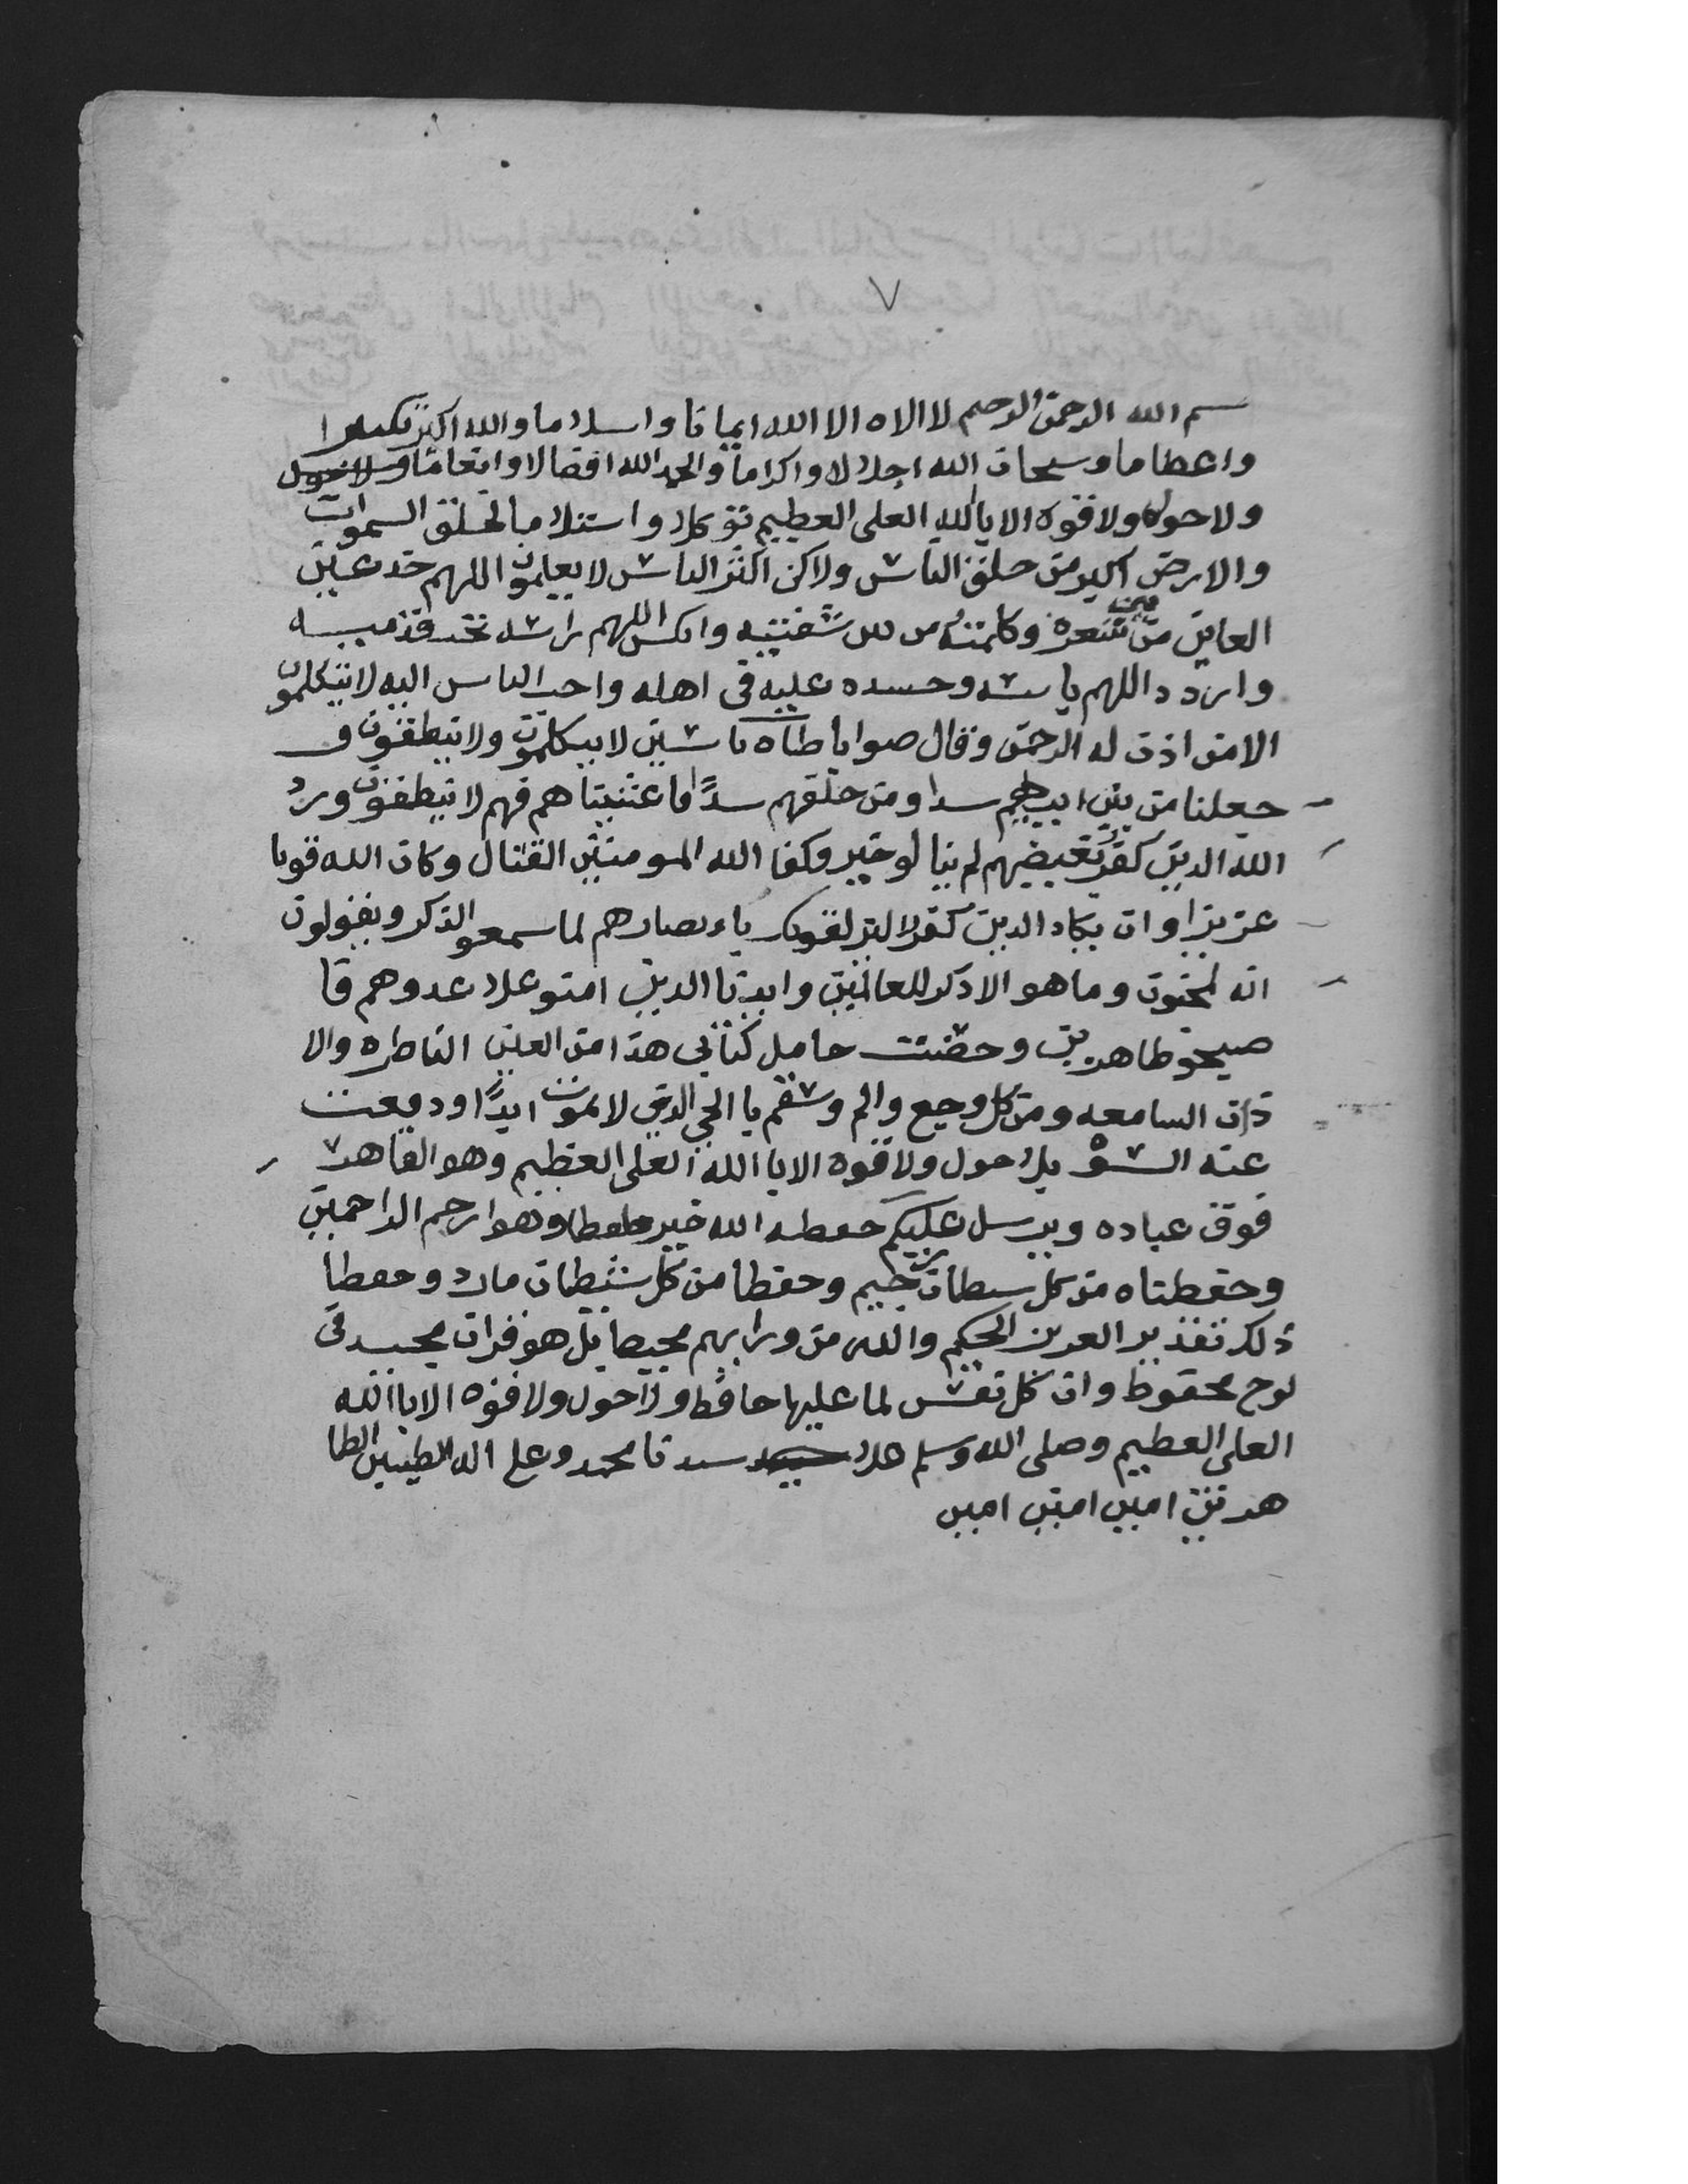 ٧
بسم الله الرحمن الرحيم لا الاه الا الله ايمانا واسلاما والله اكبر تكبيرا
واعطاما وسبحان الله اجلالا واكراما والحمد الله افضالا وانعاما ولا حول
ولا حول ولا قوه الا بالله العلى العطيم توكلا واستلاما لخلق السموات
والارض اكبر من خلق الناس ولاكن اكثر الناس لا يعلمون اللهم خد عين
العاين من شعره وكلمته من بين شفتيه وانكس اللهم راسه تحت قدميه
واردد اللهم باسه وحسده عليه فى اهله واحب الناس اليه لا يتكلمون
الا من اذن له الرحمن وقال صوابا طاه ياسين لا يتكلمون ولا ينطقون و
جعلنا من بين ايديهم سدا ومن خلفهم سدًا فاغشيناهم فهم لا ينطقون ورد
الله الدين كفرو بغيضهم لم ينالو خير وكفا الله المومنين القتال وكان الله قويا
عزيزا وان يكاد الدين كفرو ليزلقونك باءبصارهم لما سمعو الذكر ويقولون
انه لمجنون وما هو الا ذكر للعالمين وايدنا الدين امنو علا عدوهم فا
صبحو طاهرين وحضنت حامل كتابي هذا من العين الناطره والا
ذان السامعه ومن كل وجع والم وسقم با الحي الذي لا يموت ابدًا ودفعت
عنه السؤ بلا حول ولا قوه الا با الله العلى العظيم وهو القاهر
فوق عباده ويرسل عليكم حفطه الله خير حافطا وهو ارحم الراحمين
وحفطناه من كل سيطان رجيم وحفطا من كل شيطان مارد وحفطا
ذلك تقدير العزيز الحكيم والله من ورايهم محيط بل هو قران مجيد فى
لوح محفوظ وان كل نفس لما عليها حافط ولا حول ولا قوه الا با الله
العلى العطيم وصلى الله وسلم علا سيدنا محمد وعلى اله الطيبين الطا
هرين امين امين امين